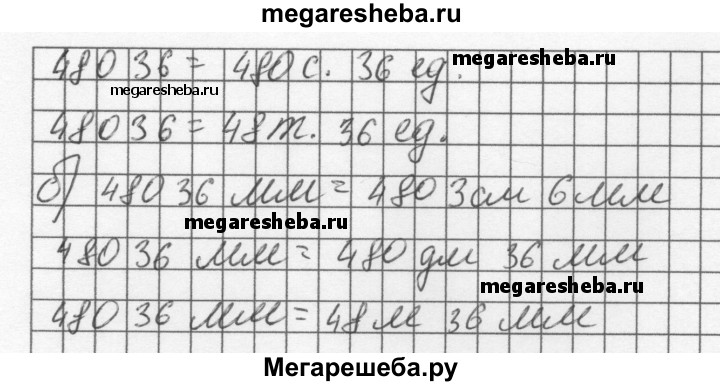 megaresheba.ru
48036 = 480 с. 36 ед.
megaresheba.ru
megaresheba.ru
48036 = 48 т. 36 ед.
б) 48036 мм = 4803 см 6 мм
megaresheba.ru
48036 мм = 480 дм 36 мм
megaresheba.ru
48036 мм = 48 м 36 мм
Мегарешеба.ру